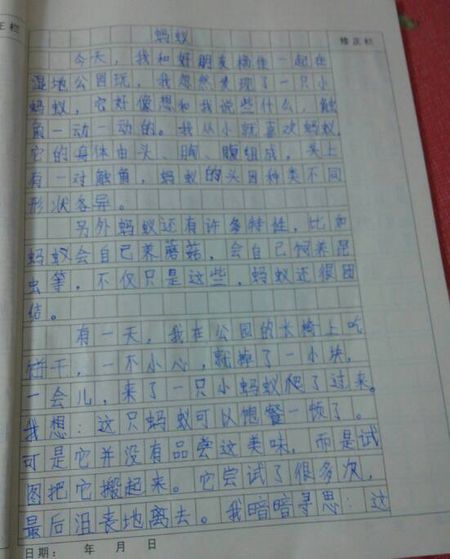 正栏
修正栏
蚂蚁
今天，我和好朋友楠佳一起在
湿地公园玩，我忽然发现了一只小
蚂蚁，它好像想和我说些什么，触
角一动一动的。我从小就喜欢蚂蚁，
它的身体由头、胸、腹组成，头上
有一对触角，蚂蚁的头因种类不同
形状各异。
另外蚂蚁还有许多特性，比如
蚂蚁会自己养蘑菇，会自己饲养昆
虫等，不仅只是这些，蚂蚁还很团
结。
有一天，我在公园的长椅上吃
饼干，一不小心，就掉了一小块，
一会儿，来了一只小蚂蚁爬了过来。
我想：这只蚂蚁可以饱餐一顿了。
可是它并没有品尝这美味，而是试
图把它搬起来。它尝试了很多次，
最后沮丧地离去。我暗暗寻思：这
日期： 年 月 日